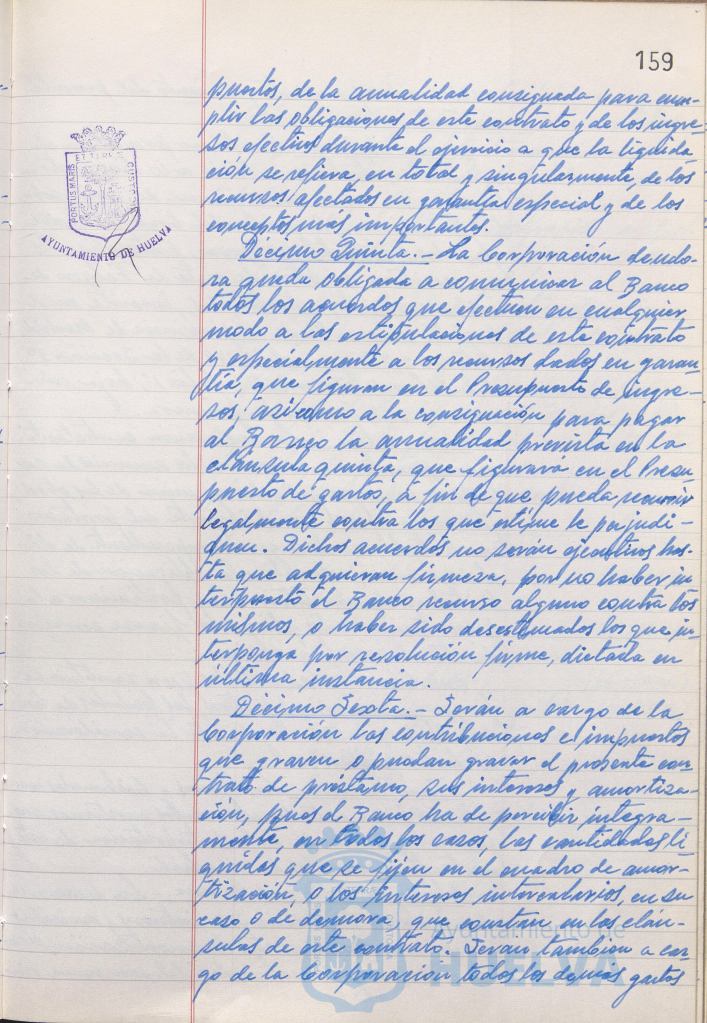 159
puestos, de la anualidad consignada para cum-
plir las obligaciones de este contrato y de los ingre-
sos efectivos durante el ejercicio a que la liquida
ción se refiera, en total y singularmente, de los
recursos afectados en garantía especial y de los
conceptos más importantes.
PORTUS MARIS ET TERRAE CUSTODIA
AYUNTAMIENTO DE HUELVA
Décimo Quinta.- La Corporación deudo-
ra queda obligada a comunicar al Banco
todos los acuerdos que afecten en cualquier
modo a las estipulaciones de este contrato
y especialmente a los recursos dados en garan-
tía, que figuran en el Presupuesto de ingre-
sos, así como a la consignación para pagar
al Banco la anualidad prevista en la
cláusula quinta, que figurará en el Presu-
puesto de gastos, a fin de que pueda recurrir
legalmente contra los que estime le perjudi-
quen. Dichos acuerdos no serán ejecutivos has-
ta que adquieran firmeza, por no haber in
terpuesto el Banco recurso alguno contra los
mismos, o haber sido desestimados los que in-
terponga por resolución firme, dictada en
última instancia.
Décimo Sexta.- Serán a cargo de la
Corporación las contribuciones e impuestos
que graven o puedan gravar el presente con-
trato de préstamo, sus intereses y amortiza-
ción, pues el Banco ha de percibir íntegra-
mente, en todos los casos, las cantidades lí
quidas que se fijen en el cuadro de amor-
tización, o los intereses intercalarios, en su
caso o de demora, que constan en las cláu-
sulas de este contrato. Seran tambien a car-
go de la Corporación todos los demás gastos
Ayuntamiento de
HUELVA